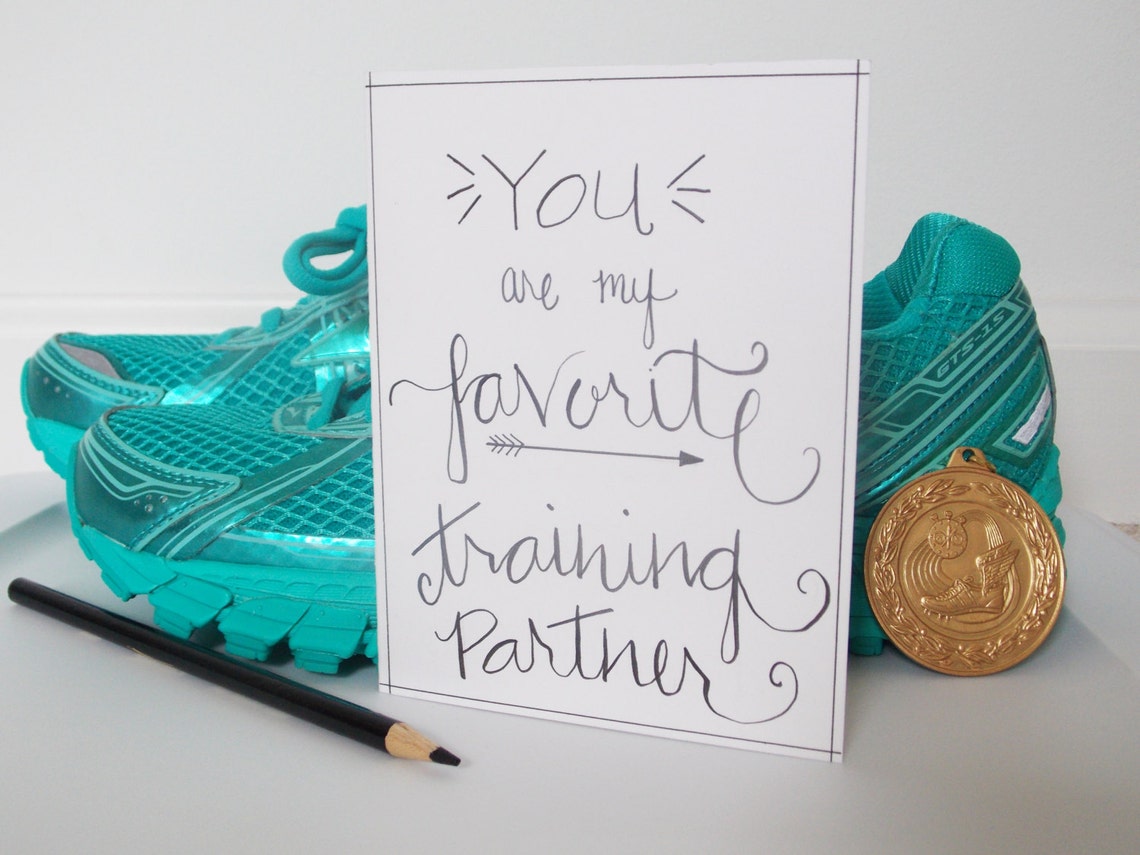 You
are my
favorite
training
Partner
GTS-15